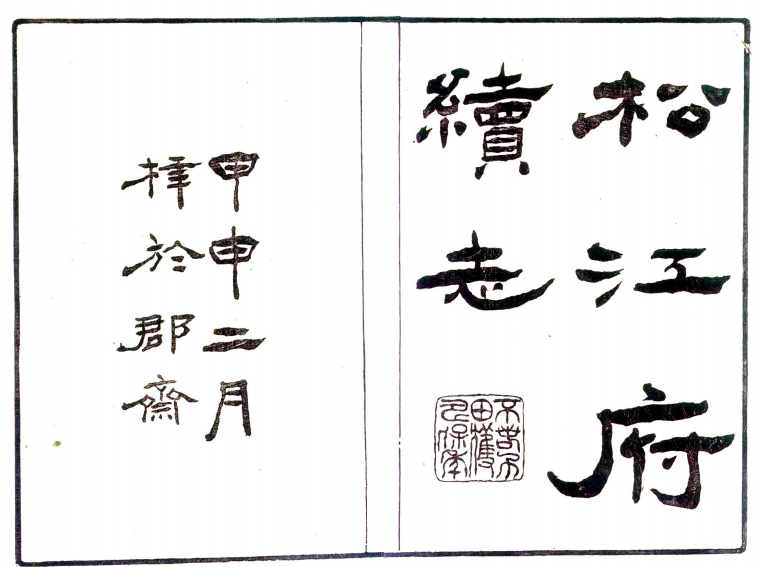 松江府
續志
甲申二月
梓於郡齋